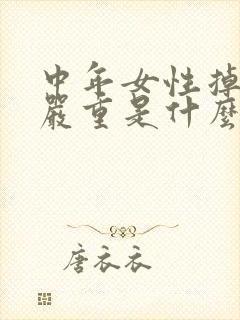 中年女性掉
嚴重是什麼
唐衣衣